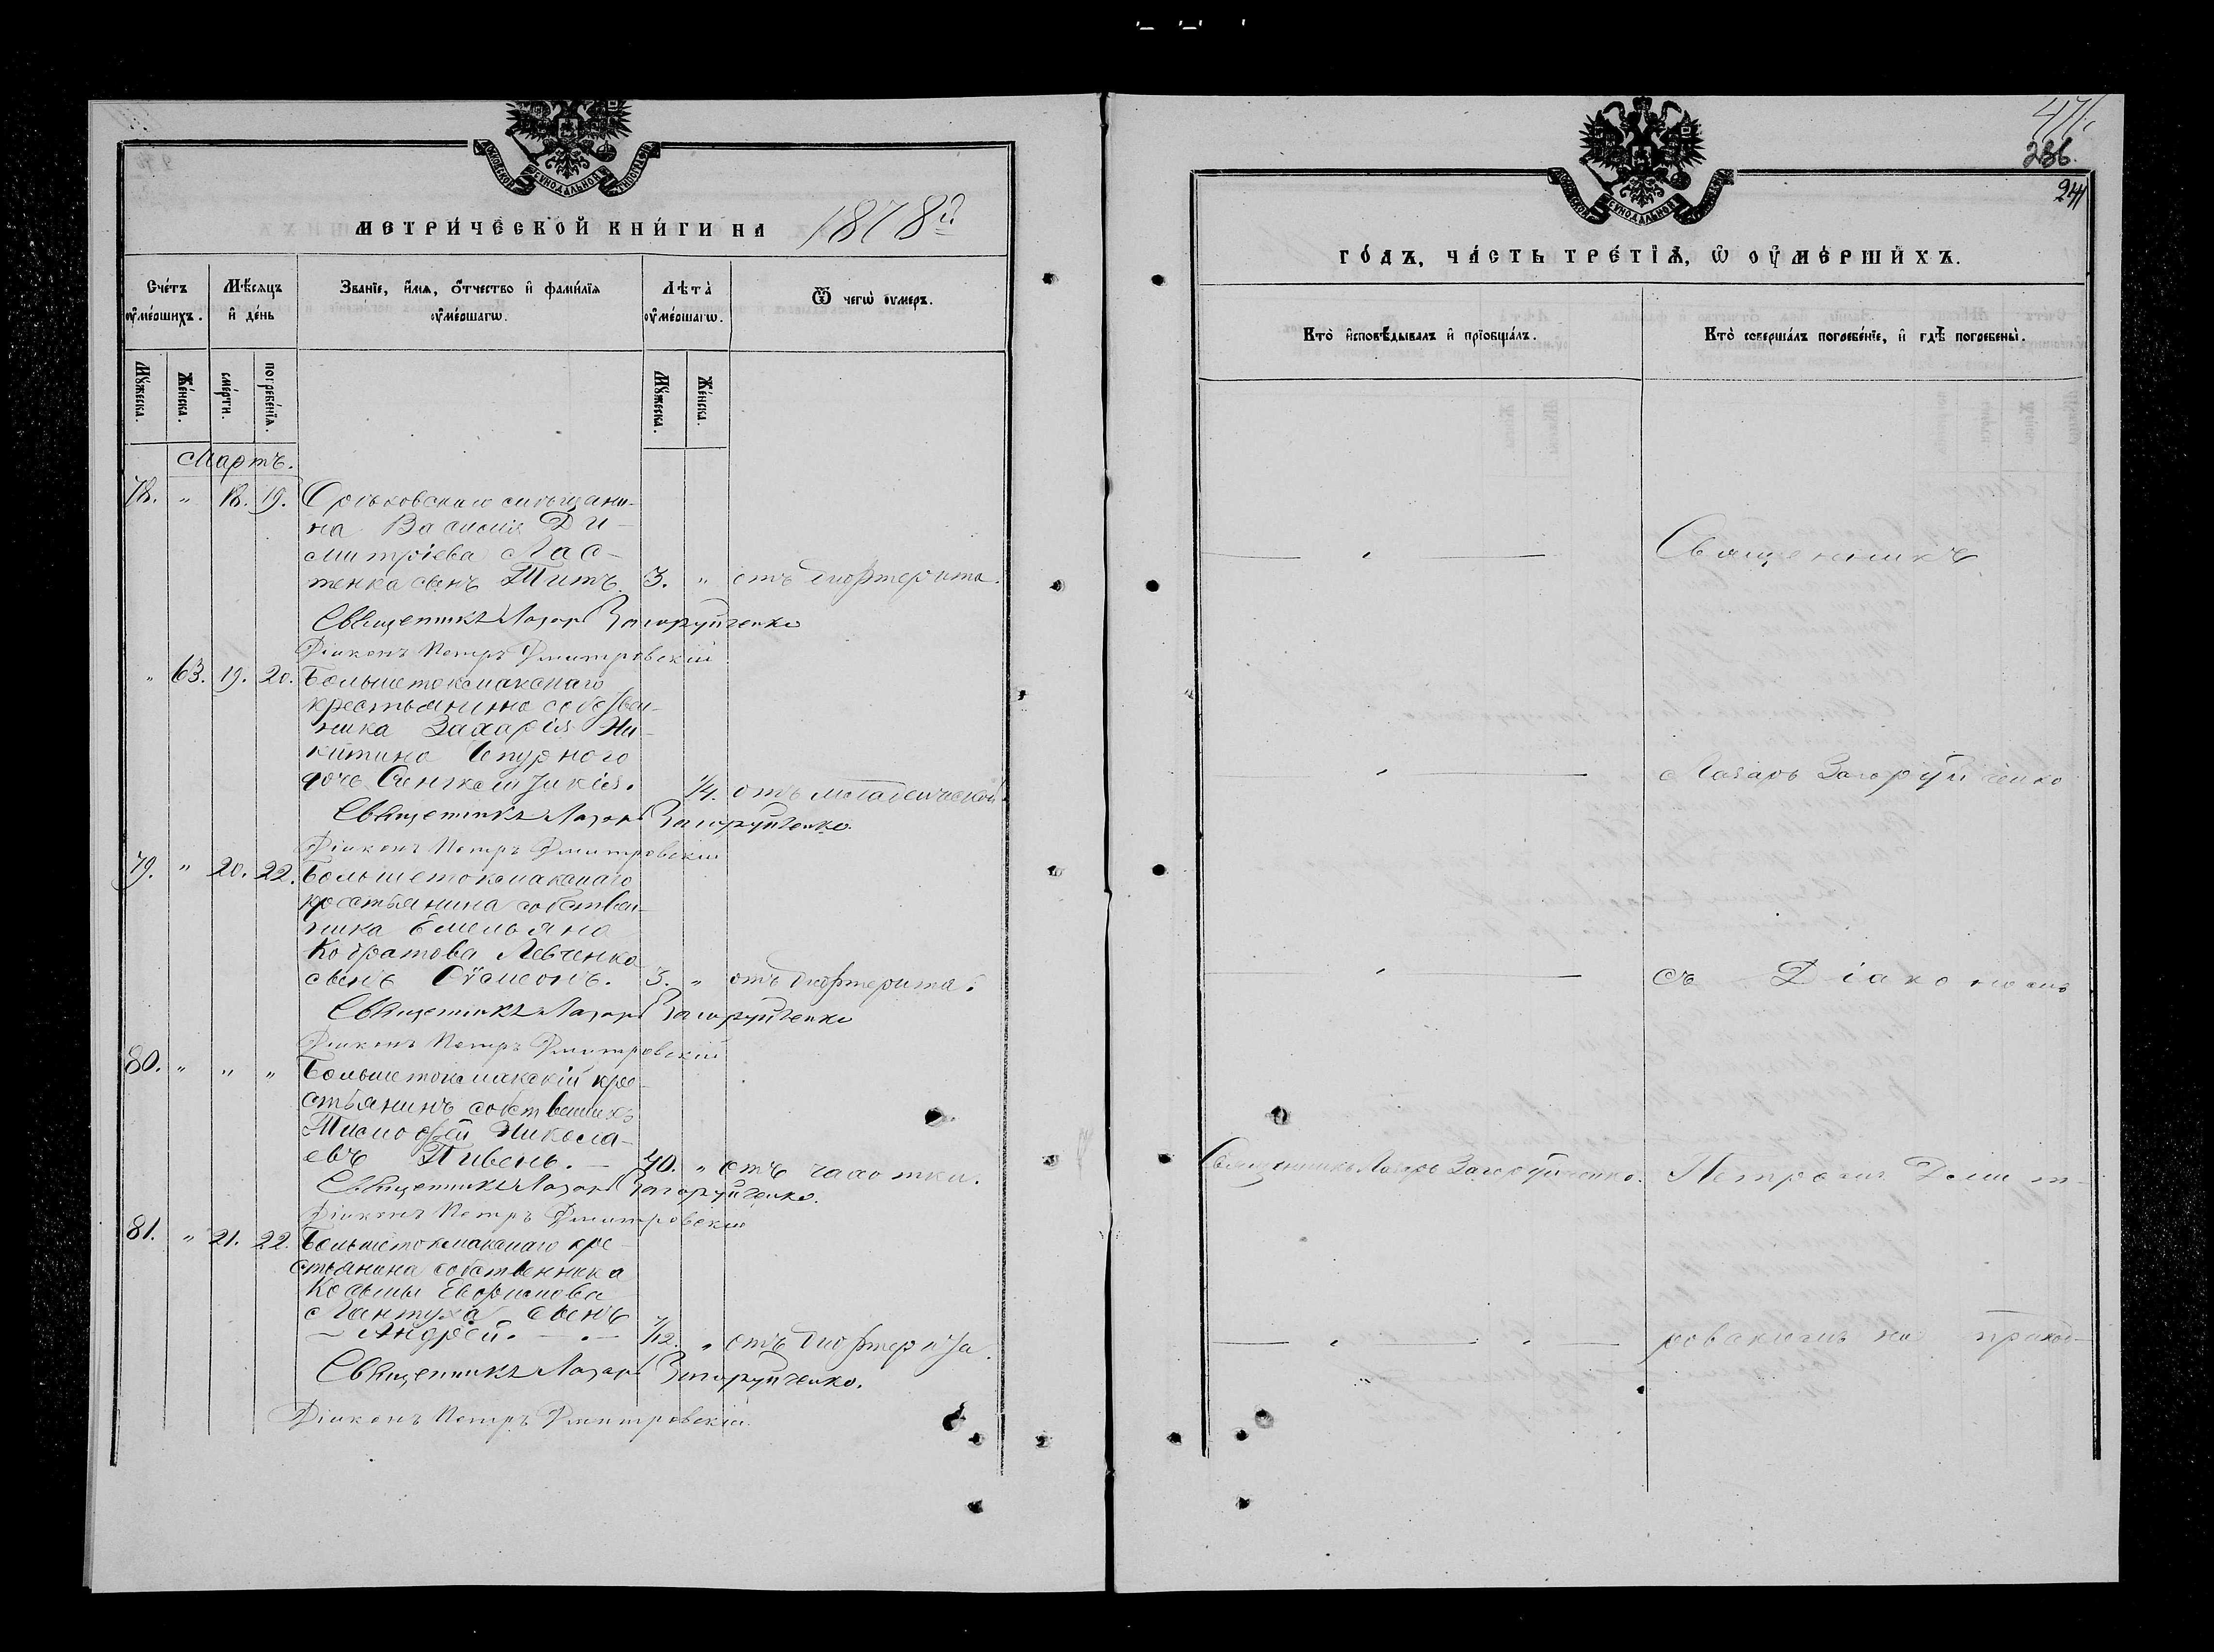 МЕТРИ́ЧЕСКОЙ КНИ́ГИ НА 1878й
Сче́тъ ᲂу҆ме́ршихъ.
Мѣ́сяцъ и҆ де́нь
Зва́нїе, и҆́мя, ѻ҆́тчество и҆ фами́лїя ᲂу҆ме́ршагѡ.
Лѣта̀ ᲂу҆ме́ршагѡ.
Ѿ чегѡ̀ ᲂу́меръ.
Мꙋ́жеска.
Же́нска.
сме́рти.
погребе́нїя.
Мꙋ́жеска.
Же́нска.
Мартъ.
78. " 18. 19.
мѣщани-
на Василія Ди-
митріева Лас-
тенка сынъ Титъ. 3. " отъ дифтерита.
Священникъ Лазарь Загоруйченко
Діаконъ Петръ Дмитровскій
" 63. 19. 20. Большетокмакскаго
крестьянина собствен-
ника Захарія Ни-
китина
дочь 1/4. отъ младенческой.
Священникъ Лазарь Загоруйченко.
Діаконъ Петръ Дмитровскій
79. " 20. 22. Большетокмакскаго
крестьянина собствен-
ника Емельяна
Кодратова Левченка
сынъ Сѵмеонъ. 3. " отъ дифтерита.
Священникъ Лазарь Загоруйченко
Діаконъ Петръ Дмитровскій
80. " " " Большетокмакскій кре-
стьянинъ собственникъ
Тимофей Никола-
евъ Пивень. — 40. " отъ чахотки.
Священникъ Лазарь Загоруйченко.
Діаконъ Петръ Дмитровскій
81. " 21. 22. Большетокмакскаго кре-
стьянина собственника
Косьмы Евфимова
Лантуха сынъ
— Андрей. — . — 7/12. " отъ
Священникъ Лазарь Загоруйченко.
Діаконъ Петръ Дмитровскій.
286.
ГО́ДЪ, ЧА́СТЬ ТРЕ́ТІѦ, Ѡ҆ ОУ҆МЕ́РШИХЪ.
Кто̀ и҆сповѣ́дывалъ и҆ прїобща́лъ.
Кто̀ соверша́лъ погребе́нїе, и҆ гдѣ̀ погребены̀.
Священникъ
Лазарь Загоруйченко
съ Діакономъ
Священникъ Лазарь Загоруйченко. Петромъ Димит-
ровскимъ на приход-